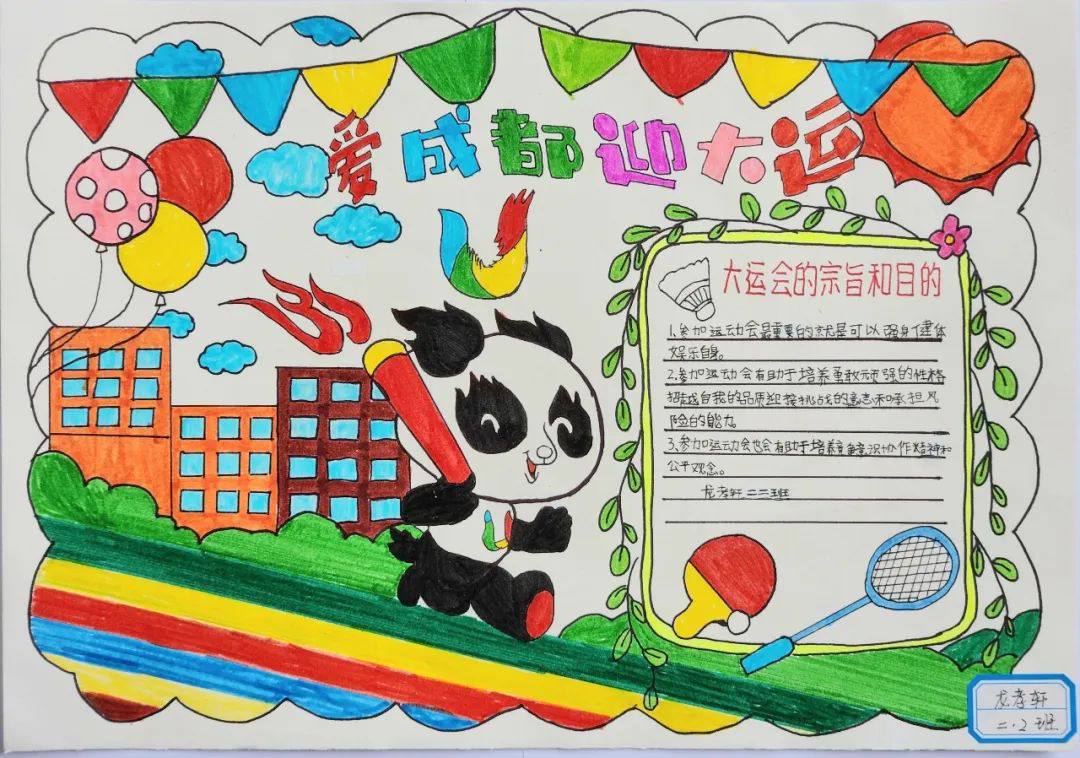 爱成都迎大运
大运会的宗旨和目的
1.参加运动会最重要的就是可以强身健体
娱乐自身。
2.参加运动会有助于培养勇敢顽强的性格
招越自我的品质迎接挑战的意志和承担风
险的能力。
3.参加运动会也会有助于培养竞意识协作精神和
公平观念。
龙孝轩 二二班
龙孝轩
二.2班